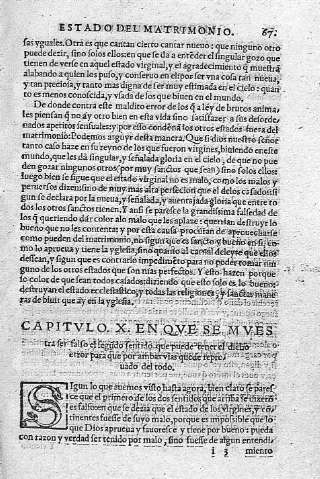 ESTADO DEL MATRIMONIO. 67.
sas yguales. Otra es que cantan cierto cantar nueuo: que ninguno otro
puede dezir, sino solos ellos: en que se da a entēder el singular gozo que
tienen de verse en aquel estado virginal, y el agradecimiento q̄ muestrā
alabando a quien los puso, y conseruo en el por ser vna cosa tan nueua,
y tan preciosa, y tanto mas digna de ser muy estimada en el cielo: quan
to es menos conoscida, y vsada de los que biuen en el mundo.
De donde contra este maldito error de los q̄ a ley de brutos anima
les piensan q̄ no ay otro bien en esta vida sino satisfazer a sus desorde-
nados apetitos sensuales: y por esso condenā los otros estados fuera del
matrimonio: Podemos arguyr desta manera. Que si dios nuestro señor
tanto caso haze en su reyno de los que fueron virgines, biuiendo en este
mundo, que les dā singular, y señalada gloria en el cielo, de que no pue
den gozar ningunos otros (por muy sanctos que sean) sino solos ellos:
luego bien se sigue que el estado virginal no es malo, como los malos y
peruersos dizen sino de muy mas alta perfecion que el de los casados: si
gun se declara por la nueua, y señalada, y auentajada gloria que entre to
dos los otros sanctos tienen. Y ansi se paresce la grandissima falsedad de
los q̄ queriendo dar color alo malo que les aplaze: querrian destruyr lo
bueno que no les contenta: y por esta causa procuran de aprouecharse
como pueden del matrimonio, no sigun que es sancto y bueno en si, co-
mo lo aprueua y tiene la yglesia, sino quanto al carnal deleyte que ellos
dessean, y sigun que es contrario impedimēto para no poder tomar nin
guno de los otros estados que son mas perfectos. Y esto hazen porque
so color de que sean todos casados: diziendo que este solo es lo bueno:
destruyan el estado ecclesiastico, y todas las religiones, y sanctas mane
ras de biuir que ay en la yglesia.
CAPITVLO. X. EN QVE SE MVES
tra ser falso el segūdo sentido que puede tener el dicho
error para que por ambas vias quede repro
uado del todo.
SIgun lo que auemos visto hasta agora, bien claro se pares
ce que el primero de los dos sentidos que arriba se dizen
es falso: en que se dezia que el estado de los virgines, y con
tinentes fuesse de suyo malo, porque es impossible que lo
que Dios aprueua y fauoresce y tiene por bueno: pueda
con razon y verdad ser tenido por malo, sino fuesse de algun entendi-
i 3 miento